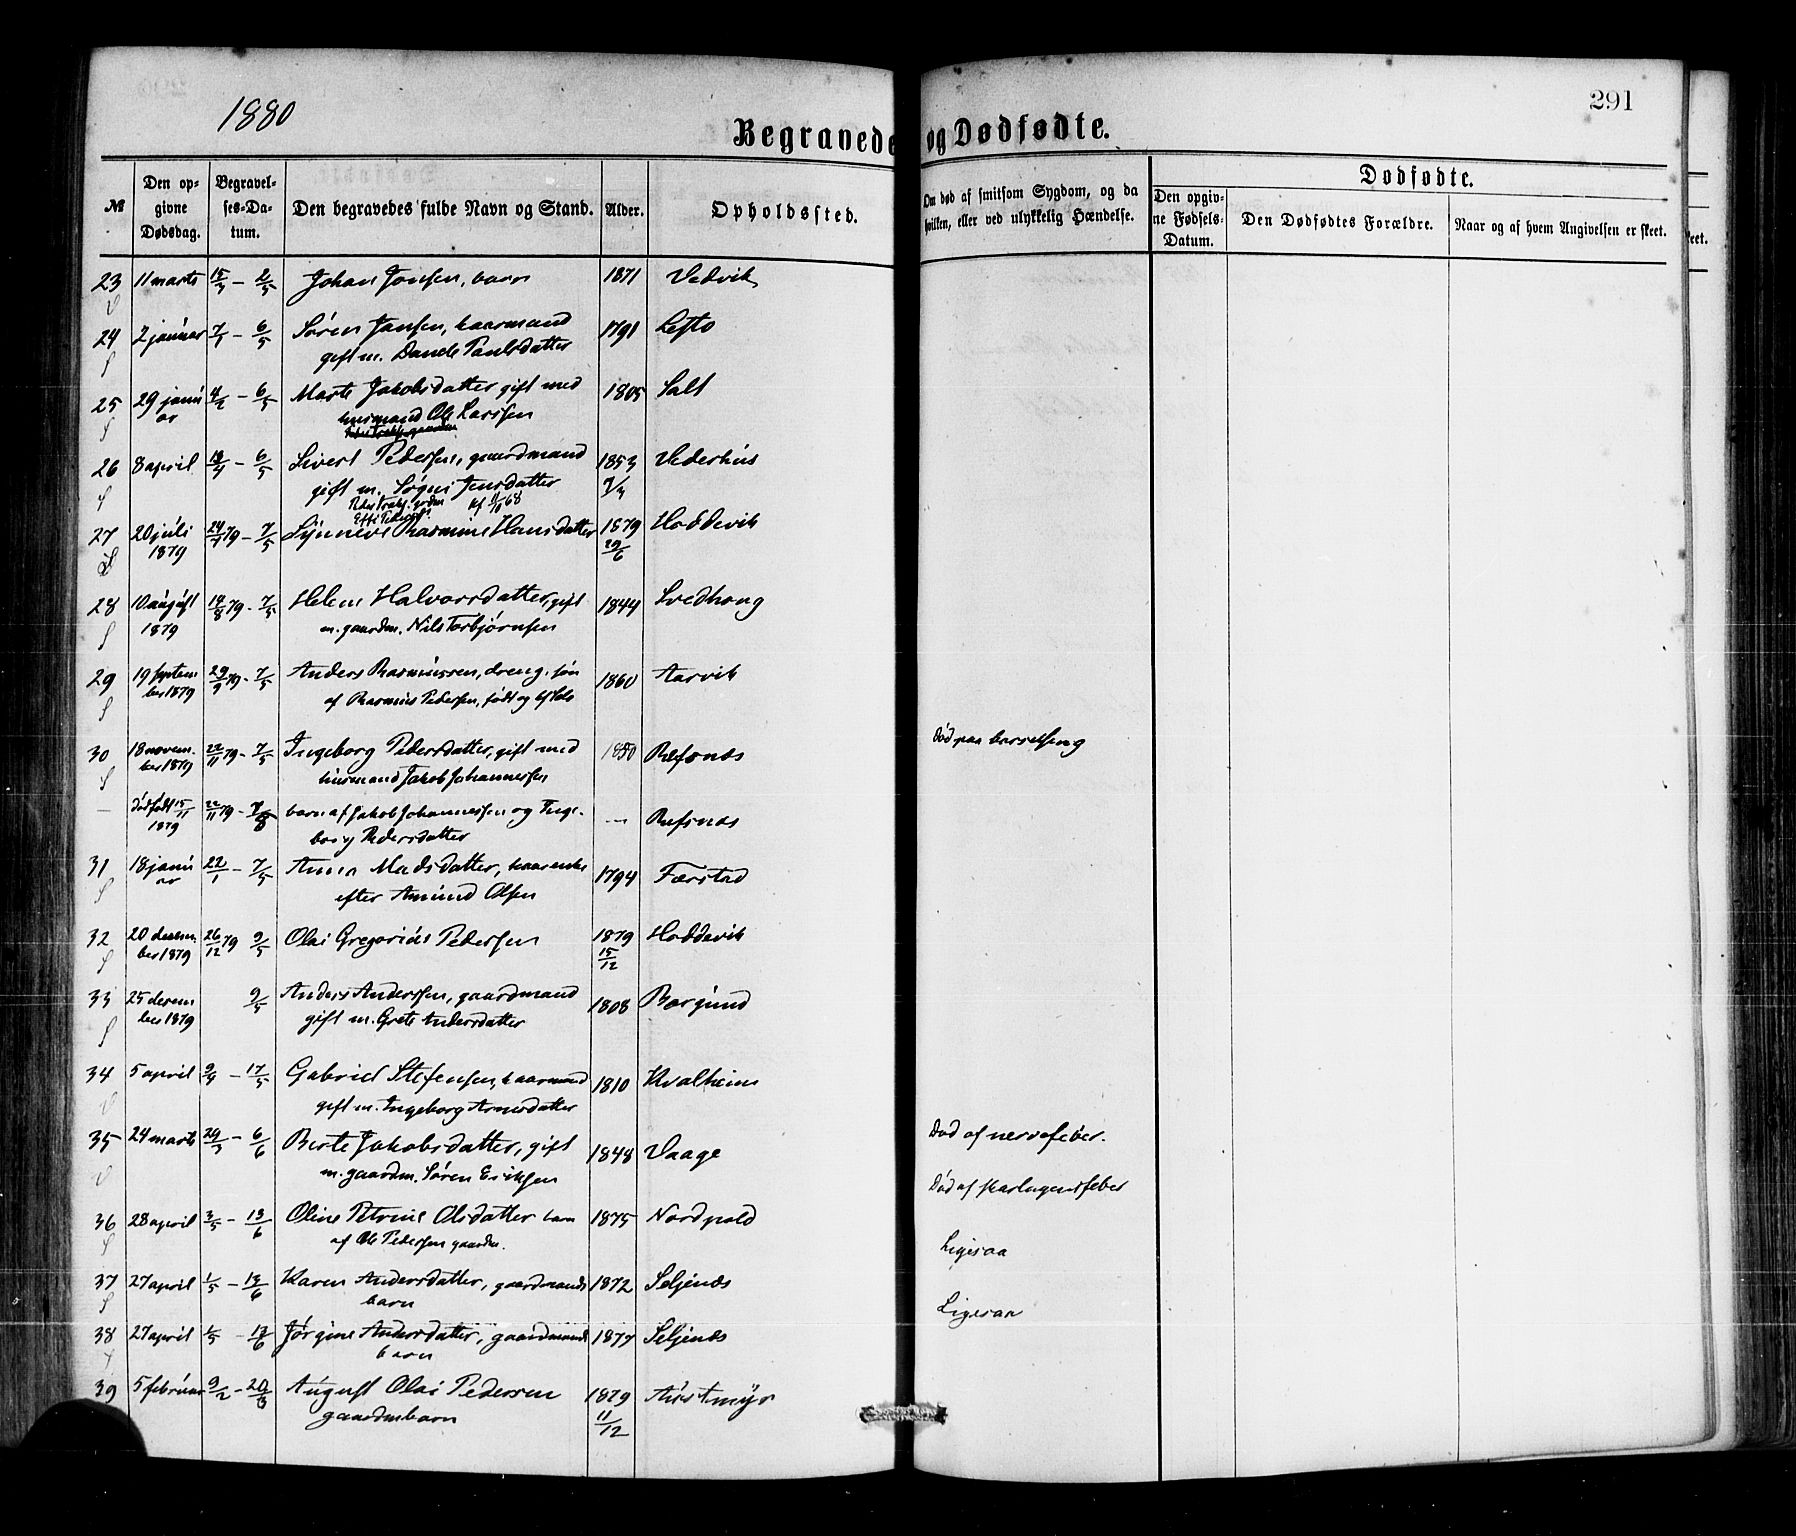 1880
291
Begravede og Dødfødte.
№ Den opgivne Dødsdag. Begravelses-Datum. Den begravedes fulde Navn og Stand. Alder. Opholdssted. Om død af smitsom Sygdom, og da hvilken, eller ved ulykkelig Hændelse. Dødfødte.
Den opgivne Fødsels-Datum. Den Dødfødtes Forældre. Naar og af hvem Angivelsen er skeet.
23 11 marts 15/3 – 2/5 Johan Jonsen, barn 1871 Vedvik
24 2 januar 7/1 – 6/5 Søren Jansen, kaarmand 1791 Lesto
gift m. Daned Paulsdatter
25 29 janu 4/2 – 6/5 Marte Jakobsdatter gift med 1805 Salt
ar husmand Ole Larssen
26 8 april 18/4 – 6/5 Sivert Pedersen, gaardmand 1853 Vederhus
gift m. Søgni Jensdatter 9/3
27 20 juli 24/7 79 – 7/5 Synneve Rasmine Hansdatter 1879 Hoddevik
1879 29/6
28 10 august 14/8 79 - 7/5 Helene Halvorsdatter, gift 1844 Svedhaug
1879 m. gaardm. Nils Torbjørnsen
29 19 septem 29/9 79 - 7/5 Anders Rasmussen, dreng, søn 1860 Aarvik
ber 1879 af Rasmus Pedersen, født og
30 18 novem- 22/11 79 - 7/5 Ingeborg Pedersdatter, gift med 1850 Refsnæs Død paa barselseng
ber 1879 husmand Jakob Johannessen
— dødfødt 15/11 22/11 79 - barn af Jakob Johannessen og Inge- — Refsnæs
1879 borg Pedersdatter
31 18 janu 22/1 – 7/5 Anna Madsdatter, kaarenke 1794 Færstad
ar efter Amund Olsen
32 20 decem- 26/12 79 9/5 Olai Gregorius Pedersen 1879 Hoddevik
ber 1879 15/12
33 25 decem 9/5 Anders Anderssen, gaardmand 1808 Borgund
ber 1879 gift m. Grete Andersdatter
34 5 april 9/4 – 17/5 Gabriel Stefensen, kaarmand 1810 Kvalheim
gift m. Ingeborg Arnesdatter
35 24 marts 29/3 – 6/6 Berte Jakobsdatter, gift 1848 Vaage Død af nervefeber.
m. gaardm. Søren Eriksen
36 28 april 3/5 – 13/6 Oline Petrine Olsdatter barn 1875 Nordpold Død af skarlagensfeber
af Ole Pedersen gaardm.
37 27 april 1/5 – 13/6 Karen Andersdatter, gaardmands 1872 Seljenæs Ligesaa
barn
38 27 april 1/5 – 13/6 Jørgine Andersdatter, gaardmands 1877 Seljenæs Ligesaa
barn
39 5 februar 9/2 – 20/6 August Olai Pedersen 1879 Austmyr
gaardmbarn 11/12